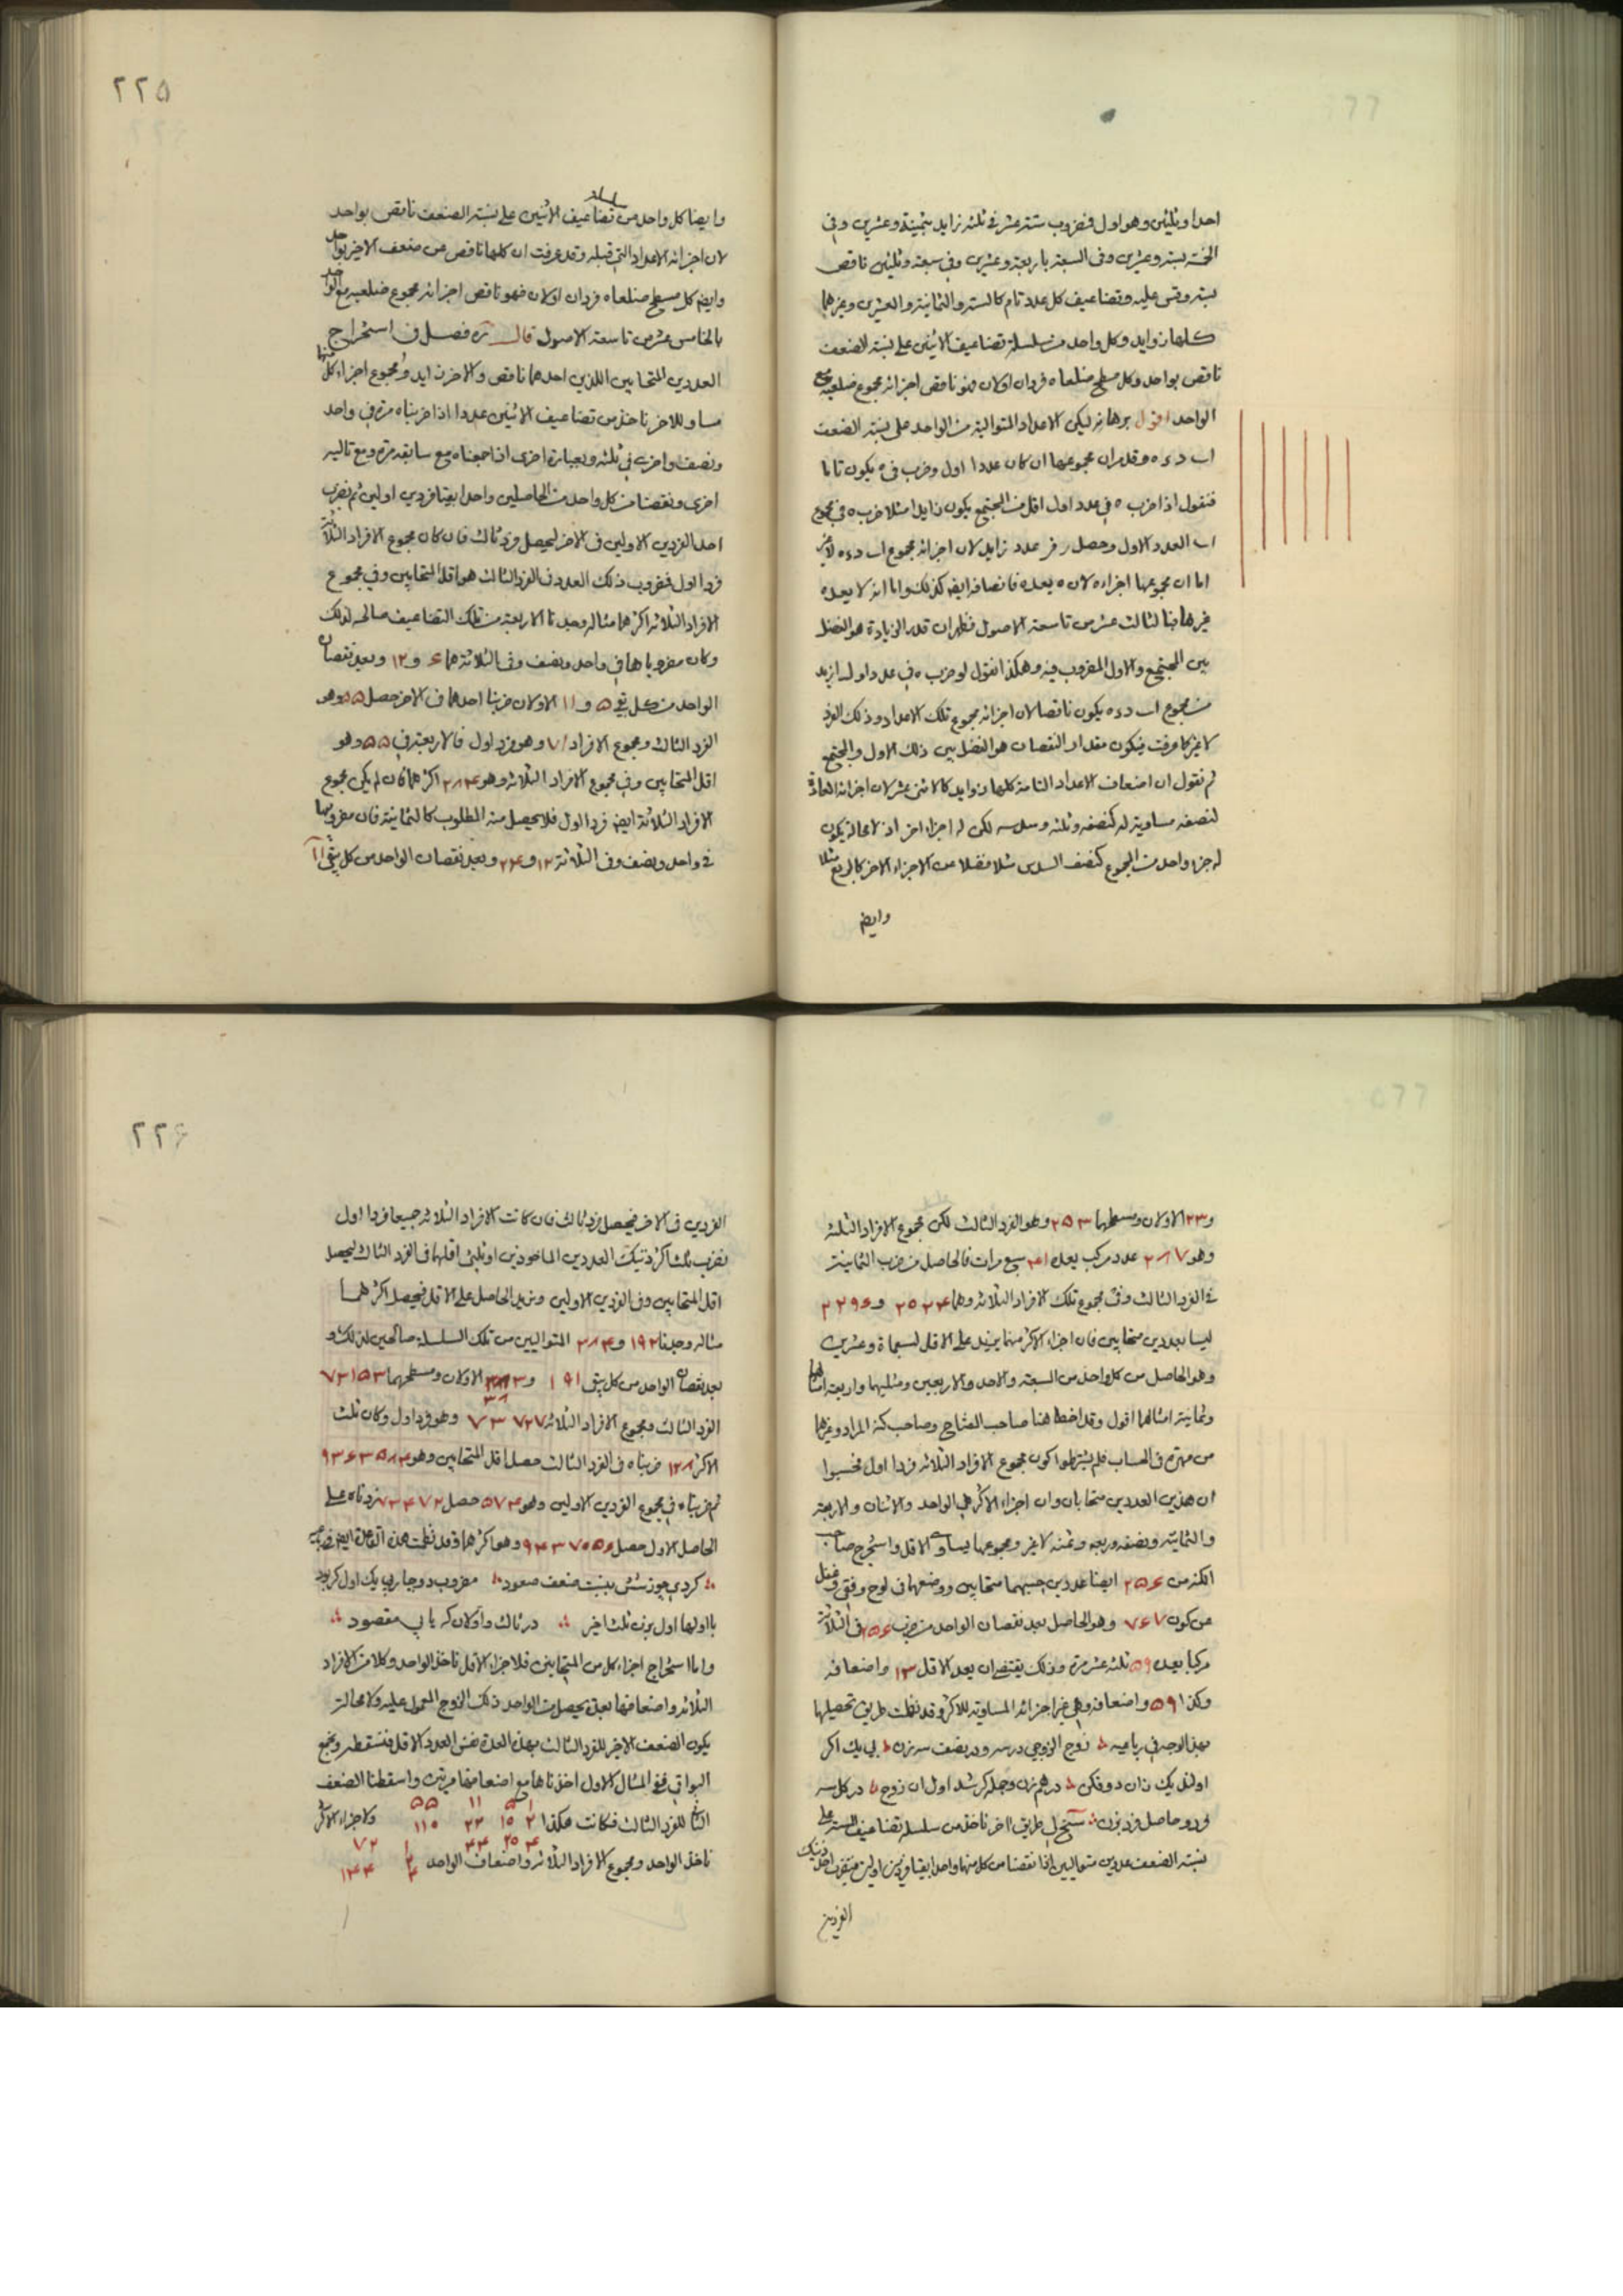 احدا وثلثين وهو اول فمضروب ستة عشر فى ثلثه زايد بثمينة وعشرين وفى
الخمسة بستة وعشرين وفى السبعة باربعة وعشرين وفى سبعة وثلثين ناقص
بستة وقس عليه وتضاعيف كل عدد تام كالستة والثمانية والعشرين وغيرهما
كلها زوايد وكل واحد من سلسلة تضاعيف الاثنين على نسبة الضعف
ناقص بواحد وكل مسطح ضلعاه فردان اولان فهو ناقص اجزائه مجموع ضلعيه مع
الواحد اقول برهانه ليكن الاعداد المتوالية من الواحد على نسبة الضعف
ا ب د ء ه وقد مر ان مجموعها ان كان عددا اول وضرب فى ه يكون تاما
فنقول اذا ضرب ه فى عدد اول اقل من المجتمع يكون زايدا مثلا ضرب ه فى مجموع
ا ب العدد الاول وحصل ر فر عدد زايد لان اجزائه مجموع ا ب د ء ه لاغير
اما ان مجموعها اجزاءه لان ه يعده فانصافه ايضا كذلك واما انه لا يعده
غيرها فبالثالث عشر من تاسعة الاصول فظهر ان قدر الزيادة هو الفضل
بين المجتمع والاول المضروب فيه وهكذا نقول لو ضرب ه فى عدد اول ازيد
من مجموع ا ب د ء ه يكون ناقصا لان اجزائه مجموع تلك الاعداد وذلك الفرد
لاغير كما عرفت فيكون مقدار النقصان هو الفضل بين ذلك الاول والمجتمع
ثم نقول ان اضعاف الاعداد التامة كلها زوايد كالاثنى عشر لان اجزائه العادة
لنصفه مساوية له كنصفه وثلثه وسدسه لكن له اجزاء اخر اذ لا محالة يكون
له جزء واحد من المجموع كنصف السدس مثلا فضلا عن الاجزاء الاخر كالربع مثلا
وايضا
٢٢٥
وايضا كل واحد من تضاعيف الاثنين على نسبة الضعف ناقص بواحد
لان اجزائه الاعداد التى قبله وقد عرفت ان كلها ناقص عن ضعف الاخير بواحد
وايضا كل مسطح ضلعاه فردان اولان فهو ناقص اجزائه مجموع ضلعيه مع الواحد
بالخامس عشر من تاسعة الاصول قال ره فصل فى استخراج
العددين المتحابين اللذين احدهما ناقص والاخر زايد ومجموع اجزاء كل منهما
مساو للاخر ناخذ من تضاعيف الاثنين عددا اذا ضربناه مرة فى واحد
ونصف واخرى فى ثلثه وبعبارة اخرى اذا جمعناه مع سابقه مرة ومع تاليه
اخرى ونقصنا من كل واحد من الحاصلين واحدا بقيا فردين اولين ثم نضرب
احد الفردين الاولين فى الاخر ليحصل فرد ثالث فان كان مجموع الافراد الثلاثة
فردا اول فمضروب ذلك العدد فى الفرد الثالث هو اقل المتحابين وفى مجموع
الافراد الثلاثه اكثرهما مثاله وجدنا الاربعة من تلك التضاعيف صالحه لذلك
وكان مضروباها فى واحد ونصف وفى الثلاثة هما ۶ و ١٢ وبعد نقصان
الواحد من كل بقى ۵ و ١١ الاولان ضربنا احدهما فى الاخر حصل ۵۵ وهو
الفرد الثالث ومجموع الافراد ٧١ وهو فرد اول فالاربعة فى ۵۵ وهو
اقل المتحابين وفى مجموع الافراد الثلاثه وهو ٢٨۴ اكثرهما فان لم يكن مجموع
الافراد الثلاثة ايضا فردا اول فلا يحصل منه المطلوب كالثمانية فان مضروبها
فى واحد ونصف وفى الثلاثة ١٢ و ٢۴ وبعد نقصان الواحد من كل بقى ١١
و ٢٣ الاولان ومسطحهما ٢۵٣ وهو الفرد الثالث لكن مجموع الافراد الثلثه
وهو ٢٨٧ عدد مركب يعده ۴١ سبع مرات فالحاصل من ضرب الثمانية
فى الفرد الثالث وفى مجموع تلك الافراد الثلاثه وهما ٢٠٢۴ و ٢٢٩۶
ليسا بعددين متحابين فان اجزاء الاكثر منهما يزيد على الاقل بسبعماة وعشرين
وهو الحاصل من كل واحد من السبعة والاحد والاربعين ومثليهما واربعة امثالهما
وثمانية امثالهما اقول وقد اخطا هنا صاحب المفتاح وصاحب كنه المراد وغيرهما
من مهرة فى الحساب فلم يشترطوا كون مجموع الافراد الثلاثه فردا اول فحسبوا
ان هذين العددين متحابان وان اجزاء الاكثر هى الواحد والاثنان والاربعة
والثمانية ونصفه وربعه وثمنه لاغير ومجموعها يساوى الاقل واستخرج صاحب
الكنه من ٢۵۶ ايضا عددين حسبهما متحابين ووضعهما فى لوح وفقى وغفل
عن كون ٧۶٧ وهو الحاصل بعد نقصان الواحد من ضرب ٢۵۶ فى الثلاثة
مركبا يعده ۵٩ ثلثه عشر مرة وذلك يقتضى ان يعد الاقل ١٣ واضعافه
وكذا ۵٩ واضعافه وهى غير اجزائه المساوية للاكثر وقد نظمت طريق تحصيلها
بهذا الوجه فى رباعيه زوج الزوجى درسه ودر يضف سه زن بى يك اكر
اولند يك زان دو فكن درهم زن وجمله كر شد اول ان زوج در كل سه
فرد وحاصل فرد بزن سنح لى طريق اخر ناخذ من سلسلة تضاعيف الستة على
نسبة الضعف عددين متواليين اذا نقصنا من كل منهما واحدا بقيا فردين اولين فنضرب احد ذينك
الفردين
٢٢۶
الفردين فى الاخر فيحصل فرد ثالث فان كانت الافراد الثلاثه جميعا فردا اول
نضرب ثلث اكثر ذينك العددين الماخوذين او ثلثى اقلهما فى الفرد الثالث ليحصل
اقل المتحابين وفى الفردين الاولين ونزيد الحاصل على الاقل فيحصل اكثرهما
مثاله وجدنا ١٩٢ و ٣٨۴ المتواليين من تلك السلسلة صالحين لذلك و
بعد نقصان الواحد من كل بقى ١٩١ و ٣٨٣ الاولان ومسطحهما ٧٣١۵٣
الفرد الثالث ومجموع الافراد الثلاثه ٧٣٧٢٧ وهو فرد اول وكان ثلث
الاكثر ١٢٨ ضربناه فى الفرد الثالث حصل اقل المتحابين وهو ٩٣۶٣۵٨۴
ثم ضربناه فى مجموع الفردين الاولين وهو ۵٧۴ حصل ٧٣۴٧٢ زدناه على
الحاصل الاول حصل ٩۴٣٧٠۵۶ وهو اكثرهما وقد نظمت هذه القاعدة ايضا فى رباعيه
كردى چوز شش بنسبت ضعف صعود مضروب دو جار بى يك اول كر بود
با اولها اول بزن ثلث اخير در ثالث واولان كه يابى مقصود
واما استخراج اجزاء كل من المتحابين فلاجزاء الاقل ناخذ الواحد وكلا من الافراد
الثلاثه واضعافها بعدة يحصل من الواحد ذلك الزوج المعمول عليه ولا محالة
يكون الضعف الاخير للفرد الثالث بهذه العدة نفس العدد الاقل فنسقطه ونجمع
البواقى ففى المثال الاول اخذناها مع اضعافها مرتين واسقطنا الضعف
١ ۵ ١١ ۵۵
الثانى للفرد الثالث فكانت هكذا ٢ ١٠ ٢٢ ١١٠ ولاجزاء الاكثر
۴ ٢٠ ۴۴ ١ ٧١
ناخذ الواحد ومجموع الافراد الثلاثه واضعاف الواحد ٢ ۴ ١۴٢